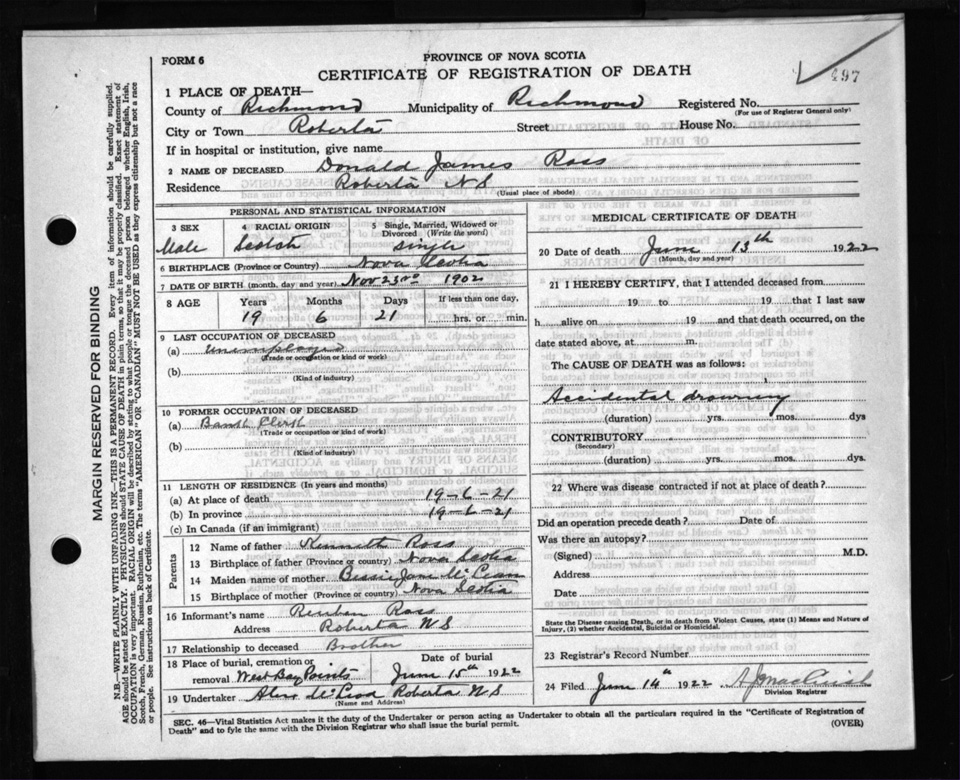 497
FORM 6
PROVINCE OF NOVA SCOTIA
CERTIFICATE OF REGISTRATION OF DEATH
1 PLACE OF DEATH—
County of Richmond Municipality of Richmond Registered No.
(For use of Registrar General only)
City or Town Roberta Street House No.
If in hospital or institution, give name
2 NAME OF DECEASED Donald James Ross
Residence Roberta N S
(Usual place of abode)
PERSONAL AND STATISTICAL INFORMATION
3 SEX 4 RACIAL ORIGIN 5 Single, Married, Widowed or Divorced (Write the word)
Male Scotch single
6 BIRTHPLACE (Province or Country) Nova Scotia
7 DATE OF BIRTH (month, day and year) Nov 23rd 1902
8 AGE Years Months Days If less than one day,
19 6 21 hrs. or min.
9 LAST OCCUPATION OF DECEASED
(a) unemployed
(Trade or occupation or kind of work)
(b)
(Kind of industry)
10 FORMER OCCUPATION OF DECEASED
(a) Bank Clerk
(Trade or occupation or kind of work)
(b)
(Kind of industry)
11 LENGTH OF RESIDENCE (In years and months)
(a) At place of death 19-6-21
(b) In province 19-6-21
(c) In Canada (if an immigrant)
Parents
12 Name of father Kenneth Ross
13 Birthplace of father (Province or country) Nova Scotia
14 Maiden name of mother Bessie Jane McLean
15 Birthplace of mother (Province or country) Nova Scotia
16 Informant's name Reuben Ross
Address Roberta N S
17 Relationship to deceased Brother
18 Place of burial, cremation or removal Date of burial
West Bay Points June 15th 1922
19 Undertaker McLeod Roberta N S
(Name and Address)
MEDICAL CERTIFICATE OF DEATH
20 Date of death June 13th 1922
(Month, day and year)
21 I HEREBY CERTIFY, that I attended deceased from
19 to 19 that I last saw
h alive on 19 and that death occurred, on the
date stated above, at m.
The CAUSE OF DEATH was as follows:
Accidental drowning
(duration) yrs. mos. dys
CONTRIBUTORY
(Secondary)
(duration) yrs. mos. dys.
22 Where was disease contracted if not at place of death?
Did an operation precede death? Date of
Was there an autopsy?
(Signed) M.D.
Address
Date
State the Disease causing Death, or in death from Violent Causes, state (1) Means and Nature of
Injury, (2) whether Accidental, Suicidal or Homicidal.
23 Registrar's Record Number
24 Filed June 14th 1922
Division Registrar
SEC. 46—Vital Statistics Act makes it the duty of the Undertaker or person acting as Undertaker to obtain all the particulars required in the "Certificate of Registration of
Death" and to fyle the same with the Division Registrar who shall issue the burial permit. (OVER)
MARGIN RESERVED FOR BINDING
N.B.—WRITE PLAINLY WITH UNFADING INK—THIS IS A PERMANENT RECORD. Every item of information should be carefully supplied.
AGE should be stated EXACTLY. PHYSICIANS should STATE CAUSE OF DEATH in plain terms, so that it may be properly classified. Exact statement of
OCCUPATION is very important. RACIAL ORIGIN will be described by stating to what people or tongue the deceased person belonged whether English, Irish,
Scotch, French, German, Russian, Ruthenian, etc. The terms "AMERICAN" OR "CANADIAN" MUST NOT BE USED as they express citizenship but not a race
or people. See instructions on back of Certificate.